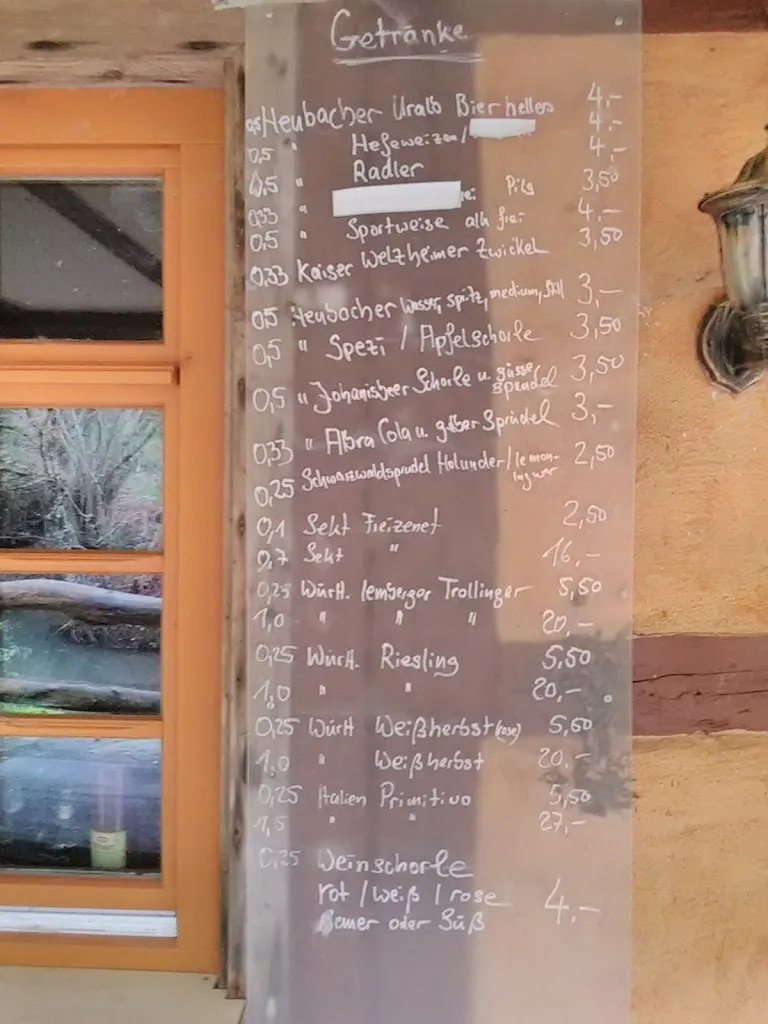 Getränke
0,5 Heubacher Uralb Bier helles 4.-
0,5 " Hefeweizen/ 4.-
0,5 " Radler 4.-
0,33 " Pils 3,50
0,5 " Sportweise alk frei 4.-
0,33 Kaiser Welzheimer Zwickel 3,50
0,5 Heubacher Wasser, spritz, medium, still 3,-
0,5 " Spezi / Apfelschorle 3,50
0,5 " Johanisbeer Schorle u. süsser Sprudel 3,50
0,33 " Abra Cola u. gelber Sprudel 3,-
0,25 Schwarzwaldsprudel Holunder/lemon-
Ingwer 2,50
0,1 Sekt Freixenet 2,50
0,7 Sekt " 16.-
0,25 Württ. lemberger Trollinger 5,50
1,0 " " " 20.-
0,25 Württ. Riesling 5,50
1,0 " " 20,-
0,25 Württ Weißherbst (rose) 5,50
1,0 " Weißherbst 20.-
0,25 Italien Primitivo 5,50
1,5 " " 27,-
0,25 Weinschorle
rot / weiß / rose 4.-
Sauer oder Süß